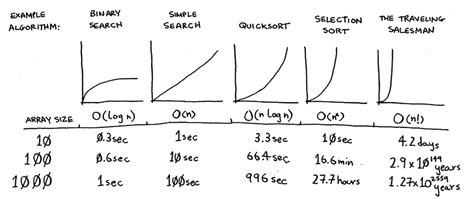 EXAMPLE ALGORITHM: BINARY SEARCH SIMPLE SEARCH QUICKSORT SELECTION SORT THE TRAVELING SALESMAN
ARRAY SIZE O(log n) O(n) O(n log n) O(n²) O(n!)
10 0.3sec 1sec 3.3sec 10sec 4.2 days
100 0.6sec 10sec 66.4sec 16.6min 2.9 x 10¹⁴⁹ years
1000 1sec 100sec 996sec 27.7hours 1.27x10²⁵⁵⁹ years